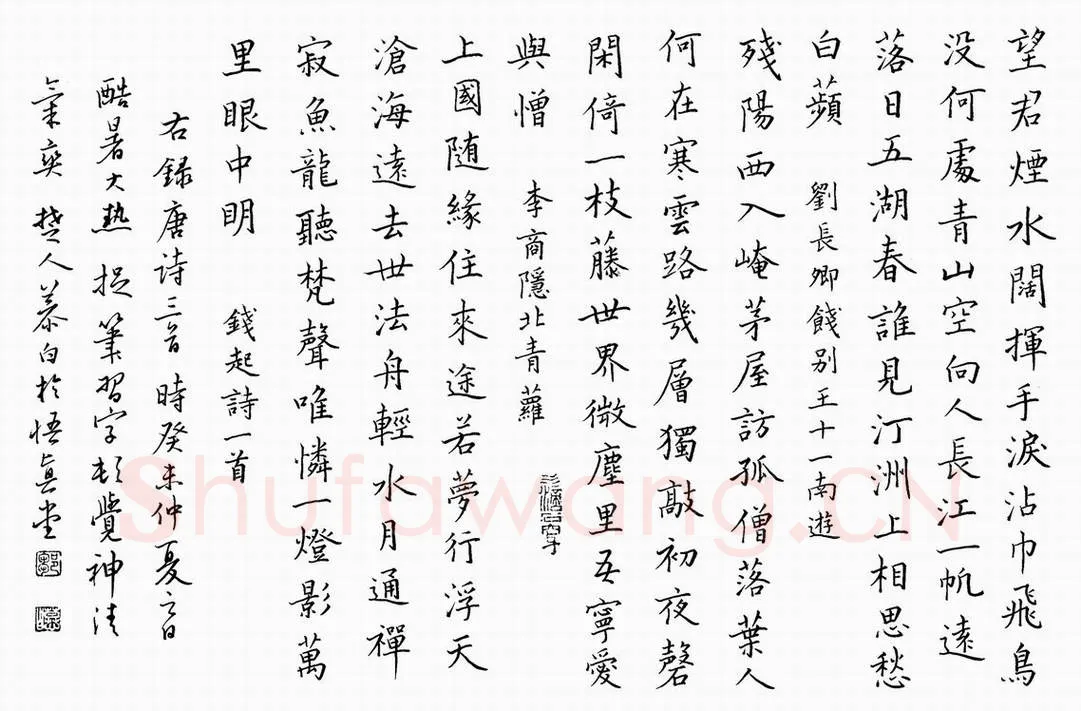 望君煙水闊揮手淚沾巾飛鳥
没何處青山空向人長江一帆遠
落日五湖春誰見汀洲上相思愁
白蘋 劉長卿餞别王十一南遊
殘陽西入崦茅屋訪孤僧落葉人
何在寒雲路幾層獨敲初夜磬
閑倚一枝藤世界微塵里吾寧愛
與憎 李商隱北青蘿
上國随緣住來途若夢行浮天
滄海遠去世法舟輕水月通禪
寂魚龍聽梵聲唯憐一燈影萬
里眼中明 錢起詩一首
右録唐诗三首時癸未仲夏之日
酷暑大热捉筆習字頓覺神清
氣爽楚人慕白於悟真堂
Shufawang.CN